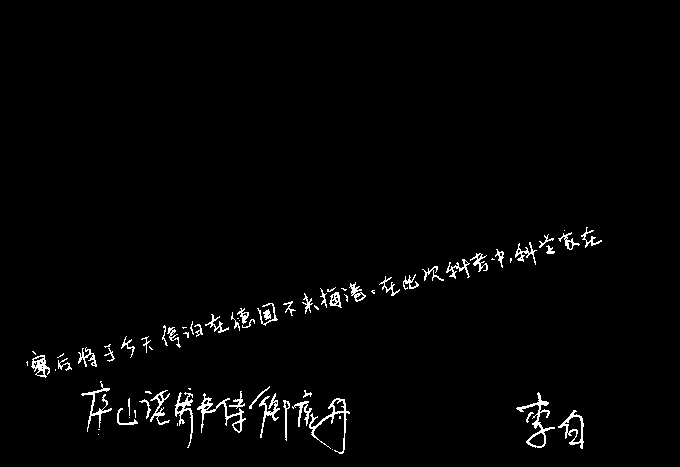 察后将于今天停泊在德国不来梅港。在此次科考中,科学家在
庐山谣寄卢侍御虚舟
李白